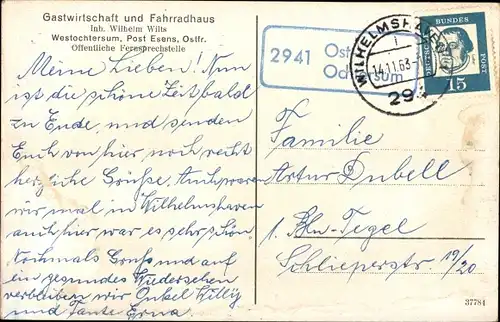 Gastwirtschaft und Fahrradhaus
Inh. Wilhelm Wilts
Westochtersum, Post Esens, Ostfr.
Öffentliche Fernsprechstelle
Meine Lieben! Nun
ist die schöne Zeit bald
zu Ende, und senden
Euch von hier noch recht
herzliche Grüße. Auch waren
wir mal in Wilhelmshaven
auch hier war es sehr schön.
Nochmals Gruß und auf
ein gesundes Wiedersehen
verbleiben wir Onkel Willy
und Tante Erna.
2941
Ost
Och sum
WILHELMSHAVEN
14.11.63
294
DEUTSCHE BUNDESPOST
15
Familie
Artur Dubell
1. Bln-Tegel
Schlieperstr. 19/20
37784